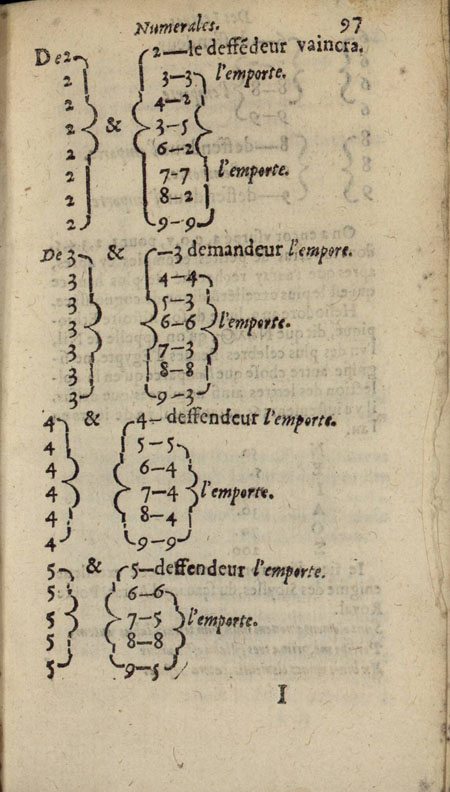 Numerales. 97
De 2 & 2—le deffēdeur vaincra.
2 3–3 l'emporte.
2 4–2
2 3–5
2 6–2
2 7-7 l'emporte.
2 8–2
2 9–9
De 3 & –3 demandeur l'empore.
3 4–4
3 5–3
3 6–6 l'emporte.
3 7–3
3 8–8
3 9–3
4 & 4– deffendeur l'emporte.
4 5–5
4 6–4
4 7–4 l'emporte.
4 8–4
4 9–9
5 & 5—deffendeur l'emporte.
5 6–6
5 7–5 l'emporte.
5 8–8
5 9–5
I